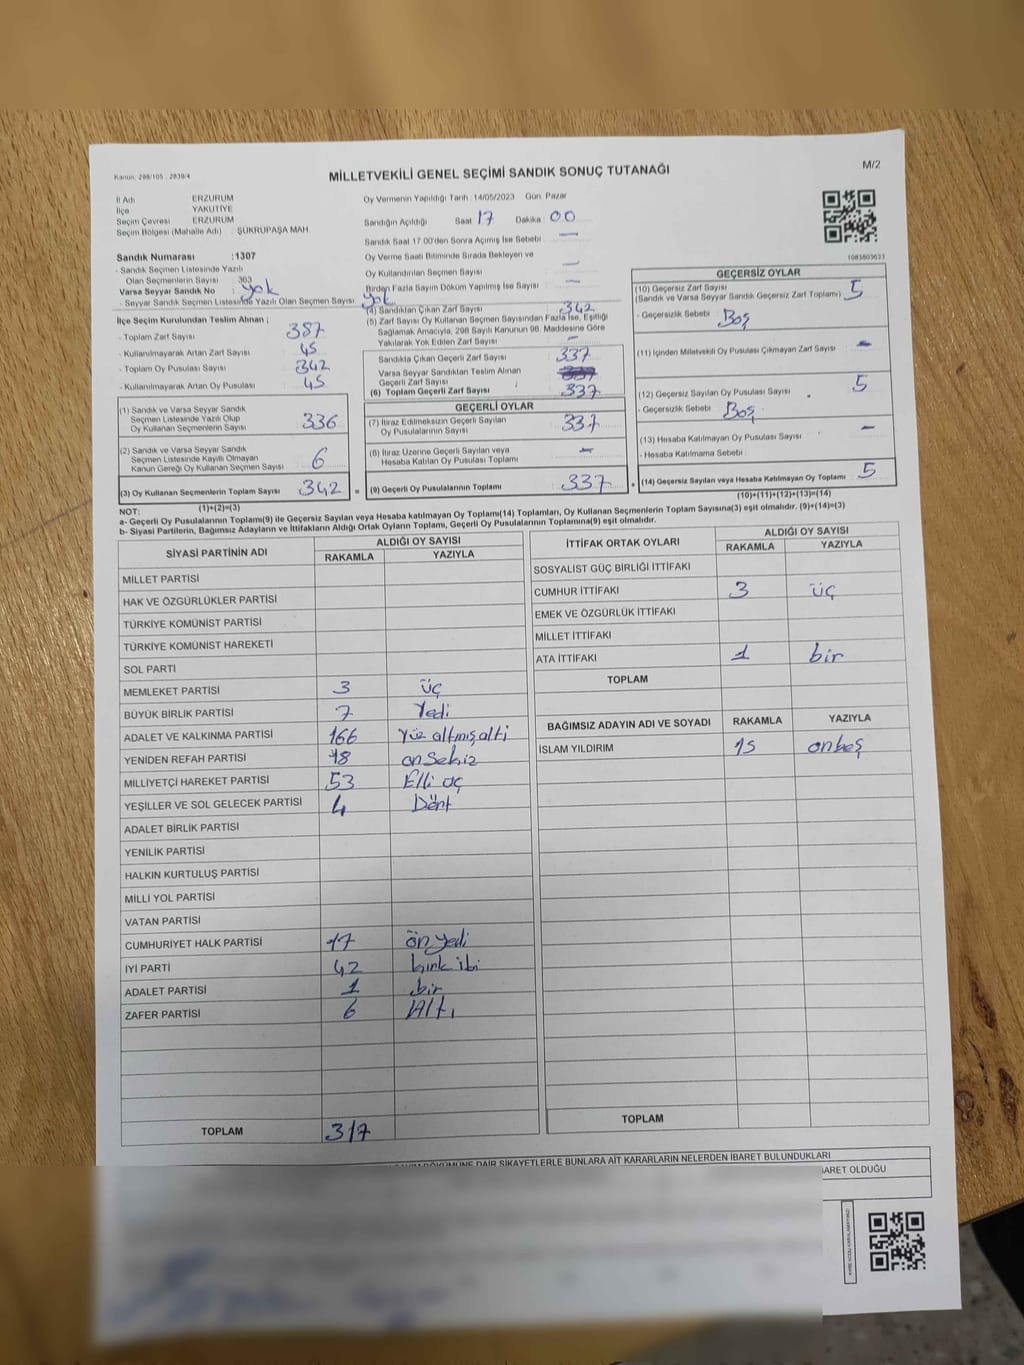 Kanun: 298/105 , 2839/4
MİLLETVEKİLİ GENEL SEÇİMİ SANDIK SONUÇ TUTANAĞI
M/2
İl Adı ERZURUM
İlçe YAKUTİYE
Seçim Çevresi ERZURUM
Seçim Bölgesi (Mahalle Adı) : ŞÜKRÜPAŞA MAH.
Sandık Numarası :1307
- Sandık Seçmen Listesinde Yazılı
Olan Seçmenlerin Sayısı 363
Varsa Seyyar Sandık No : yok
- Seyyar Sandık Seçmen Listesinde Yazılı Olan Seçmen Sayısı yok
İlçe Seçim Kurulundan Teslim Alınan ;
- Toplam Zarf Sayısı 387
- Kullanılmayarak Artan Zarf Sayısı 45
- Toplam Oy Pusulası Sayısı 342
- Kullanılmayarak Artan Oy Pusulası 45
(1) Sandık ve Varsa Seyyar Sandık
Seçmen Listesinde Yazılı Olup
Oy Kullanan Seçmenlerin Sayısı 336
(2) Sandık ve Varsa Seyyar Sandık
Seçmen Listesinde Kayıtlı Olmayan
Kanun Gereği Oy Kullanan Seçmen Sayısı 6
(3) Oy Kullanan Seçmenlerin Toplam Sayısı 342
(1)+(2)=(3)
Oy Vermenin Yapıldığı Tarih :14/05/2023 Gün: Pazar
Sandığın Açıldığı Saat 17 Dakika : 00
Sandık Saat 17.00'den Sonra Açılmış İse Sebebi : —
Oy Verme Saati Bitiminde Sırada Bekleyen ve
Oy Kullandırılan Seçmen Sayısı —
Birden Fazla Sayım Döküm Yapılmış İse Sayısı —
(4) Sandıktan Çıkan Zarf Sayısı 342
(5) Zarf Sayısı Oy Kullanan Seçmen Sayısından Fazla İse, Eşitliği
Sağlamak Amacıyla, 298 Sayılı Kanunun 98. Maddesine Göre
Yakılarak Yok Edilen Zarf Sayısı —
Sandıkta Çıkan Geçerli Zarf Sayısı 337
Varsa Seyyar Sandıktan Teslim Alınan
Geçerli Zarf Sayısı
(6) Toplam Geçerli Zarf Sayısı 337
GEÇERLİ OYLAR
(7) İtiraz Edilmeksizin Geçerli Sayılan
Oy Pusulalarının Sayısı 337
(8) İtiraz Üzerine Geçerli Sayılan veya
Hesaba Katılan Oy Pusulası Toplamı —
= (9) Geçerli Oy Pusulalarının Toplamı 337 +
1083803633
GEÇERSİZ OYLAR
(10) Geçersiz Zarf Sayısı
(Sandık ve Varsa Seyyar Sandık Geçersiz Zarf Toplamı) 5
- Geçersizlik Sebebi Boş
(11) İçinden Milletvekili Oy Pusulası Çıkmayan Zarf Sayısı —
(12) Geçersiz Sayılan Oy Pusulası Sayısı 5
- Geçersizlik Sebebi Boş
(13) Hesaba Katılmayan Oy Pusulası Sayısı —
- Hesaba Katılmama Sebebi :
(14) Geçersiz Sayılan veya Hesaba Katılmayan Oy Toplamı 5
(10)+(11)+(12)+(13)=(14)
NOT:
a- Geçerli Oy Pusulalarının Toplamı(9) ile Geçersiz Sayılan veya Hesaba katılmayan Oy Toplamı(14) Toplamları, Oy Kullanan Seçmenlerin Toplam Sayısına(3) eşit olmalıdır. (9)+(14)=(3)
b- Siyasi Partilerin, Bağımsız Adayların ve İttifakların Aldığı Ortak Oyların Toplamı, Geçerli Oy Pusulalarının Toplamına(9) eşit olmalıdır.
SİYASİ PARTİNİN ADI ALDIĞI OY SAYISI
RAKAMLA YAZIYLA
MİLLET PARTİSİ
HAK VE ÖZGÜRLÜKLER PARTİSİ
TÜRKİYE KOMÜNİST PARTİSİ
TÜRKİYE KOMÜNİST HAREKETİ
SOL PARTİ
MEMLEKET PARTİSİ 3 üç
BÜYÜK BİRLİK PARTİSİ 7 Yedi
ADALET VE KALKINMA PARTİSİ 166 Yüz altmış altı
YENİDEN REFAH PARTİSİ 18 on Sekiz
MİLLİYETÇİ HAREKET PARTİSİ 53 Elli üç
YEŞİLLER VE SOL GELECEK PARTİSİ 4 Dört
ADALET BİRLİK PARTİSİ
YENİLİK PARTİSİ
HALKIN KURTULUŞ PARTİSİ
MİLLİ YOL PARTİSİ
VATAN PARTİSİ
CUMHURİYET HALK PARTİSİ 17 ön yedi
İYİ PARTİ 42 kırk iki
ADALET PARTİSİ 1 bir
ZAFER PARTİSİ 6 Altı
TOPLAM 317
İTTİFAK ORTAK OYLARI ALDIĞI OY SAYISI
RAKAMLA YAZIYLA
SOSYALİST GÜÇ BİRLİĞİ İTTİFAKI
CUMHUR İTTİFAKI 3 üç
EMEK VE ÖZGÜRLÜK İTTİFAKI
MİLLET İTTİFAKI
ATA İTTİFAKI 1 bir
TOPLAM
BAĞIMSIZ ADAYIN ADI VE SOYADI RAKAMLA YAZIYLA
İSLAM YILDIRIM 15 onbeş
TOPLAM
DÖKÜMÜNE DAİR ŞİKAYETLERLE BUNLARA AİT KARARLARIN NELERDEN İBARET BULUNDUKLARI
BARET OLDUĞU